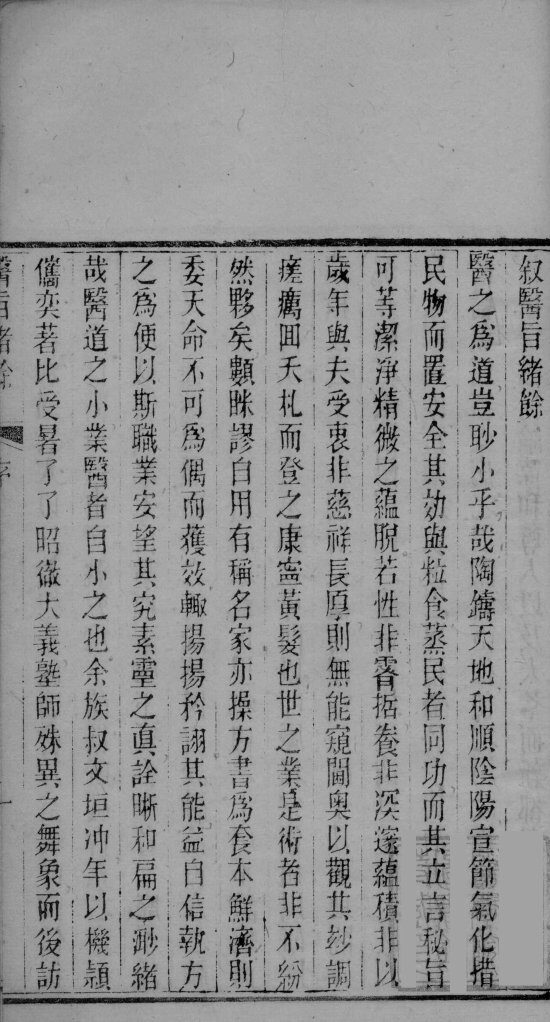 叙醫旨緒餘
醫之爲道豈眇小乎哉陶鑄天地和順陰陽宣節氣化措
民物而置安全其効與粒食蒸民者同功而其立言秘旨
可等潔净精微之蘊脫若性非睿括養非深邃蘊積非以
歲年與夫受衷非慈祥長厚則無能窺閫奥以觀其玅調
瘥癘囬夭札而登之康寧黃髮也世之業是術者非不紛
然夥矣顧眯謬自用有稱名家亦操方書爲套本鮮濟則
委天命不可爲偶而獲效輙揚揚矜詡其能益自信執方
之爲便以斯職業安望其究素靈之眞詮晰和扁之渺緒
哉醫道之小業醫者自小之也余族叔文垣冲年以機穎
儁奕著比受暑了了昭徹大義塾師殊異之舞象而後訪
醫旨緒餘 序 一